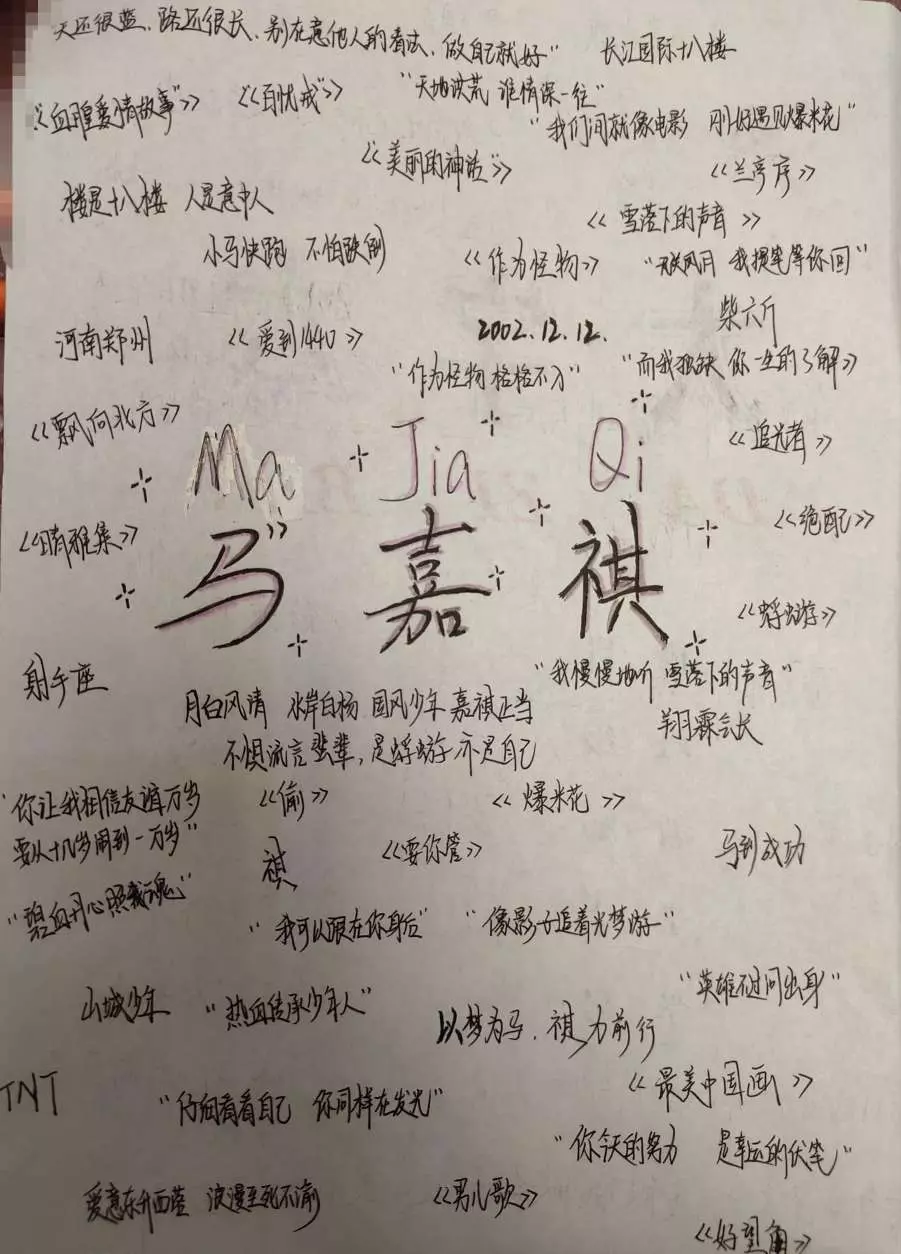 天还很蓝、路还很长、别在意他人的看法、做自己就好” 长江国际十八楼
《血腥爱情故事》 《百忧戒》 “天地洪荒 谁情深一往”
“我们间就像电影 刚好遇见爆米花”
《美丽的神话》 《兰亭序》
楼是十八楼 人是意中人 《雪落下的声音》
小马快跑 不怕跌倒 《作为怪物》 “无关风月 我提笔等你回”
河南郑州 《爱到1440》 2002.12.12. 柴六斤
“作为怪物格格不入” “而我独缺 你一生的了解》
《飘向北方》 《追光者》
Ma Jia Qi
《晴雅集》 《绝配》
马嘉祺
《蜉蝣》
射手座 “我慢慢地听 雪落下的声音”
月白风清 水岸白杨 国风少年 嘉祺正当 翔霖会长
不惧流言蜚辈，是蜉蝣亦是自己
“你让我相信友谊万岁 《偷》 《爆米花》
要从十几岁闹到一万岁” 祺 《要你管》 马到成功
“碧血丹心照我魂” “我可以跟在你身后” “像影子追着光梦游”
山城少年 “热血传承少年人” “英雄不过问出身”
以梦为马、祺力前行
TNT “仔细看看自己 你同样在发光” 《最美中国画》
“你今天的努力 是幸运的伏笔”
爱意东升西落 浪漫至死不渝 《男儿歌》
《好望角》